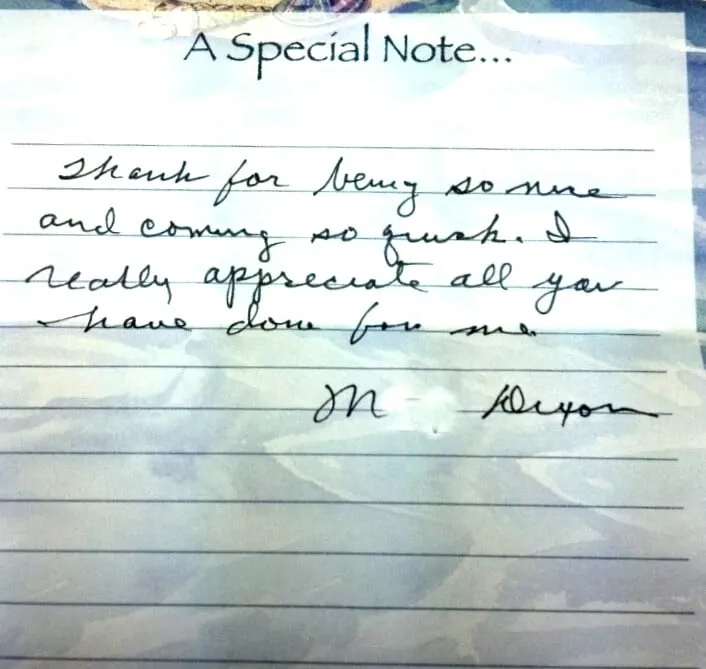 A Special Note...
Thank for being so nice
and coming so quick. I
really appreciate all you
have done for me.
M Dixon